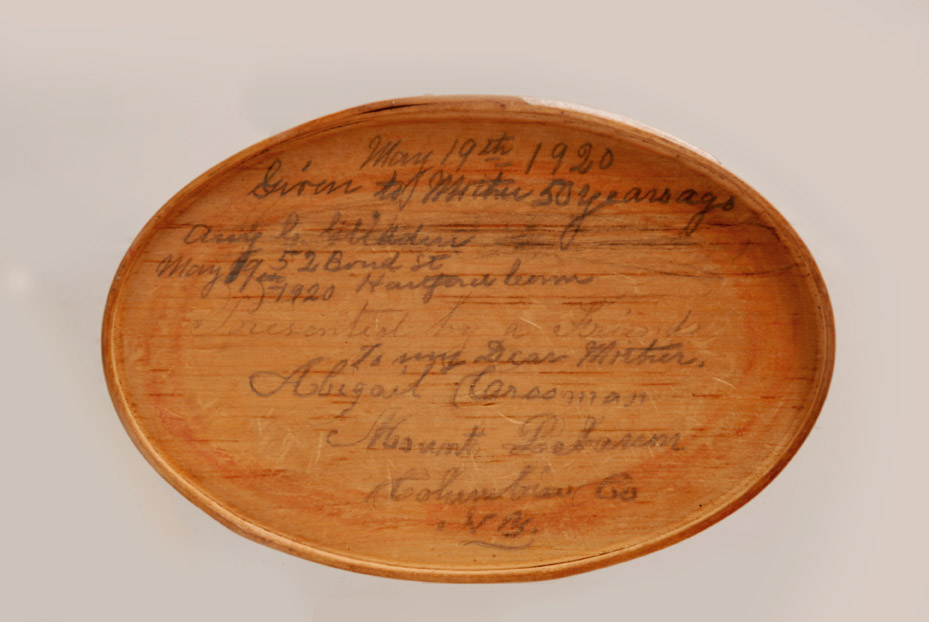 May 19th 1920
Given to Mother 50 years ago
Amy C.
May 19th 52 Bond St
1920 Hartford Conn
Presented by a Friend
To my Dear Mother.
Abigail Crossman
Mount Lebanon
Columbia Co
N.Y.